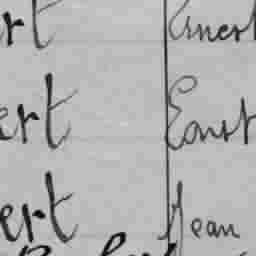 ert Ernest
ert Ernst
ert Jean